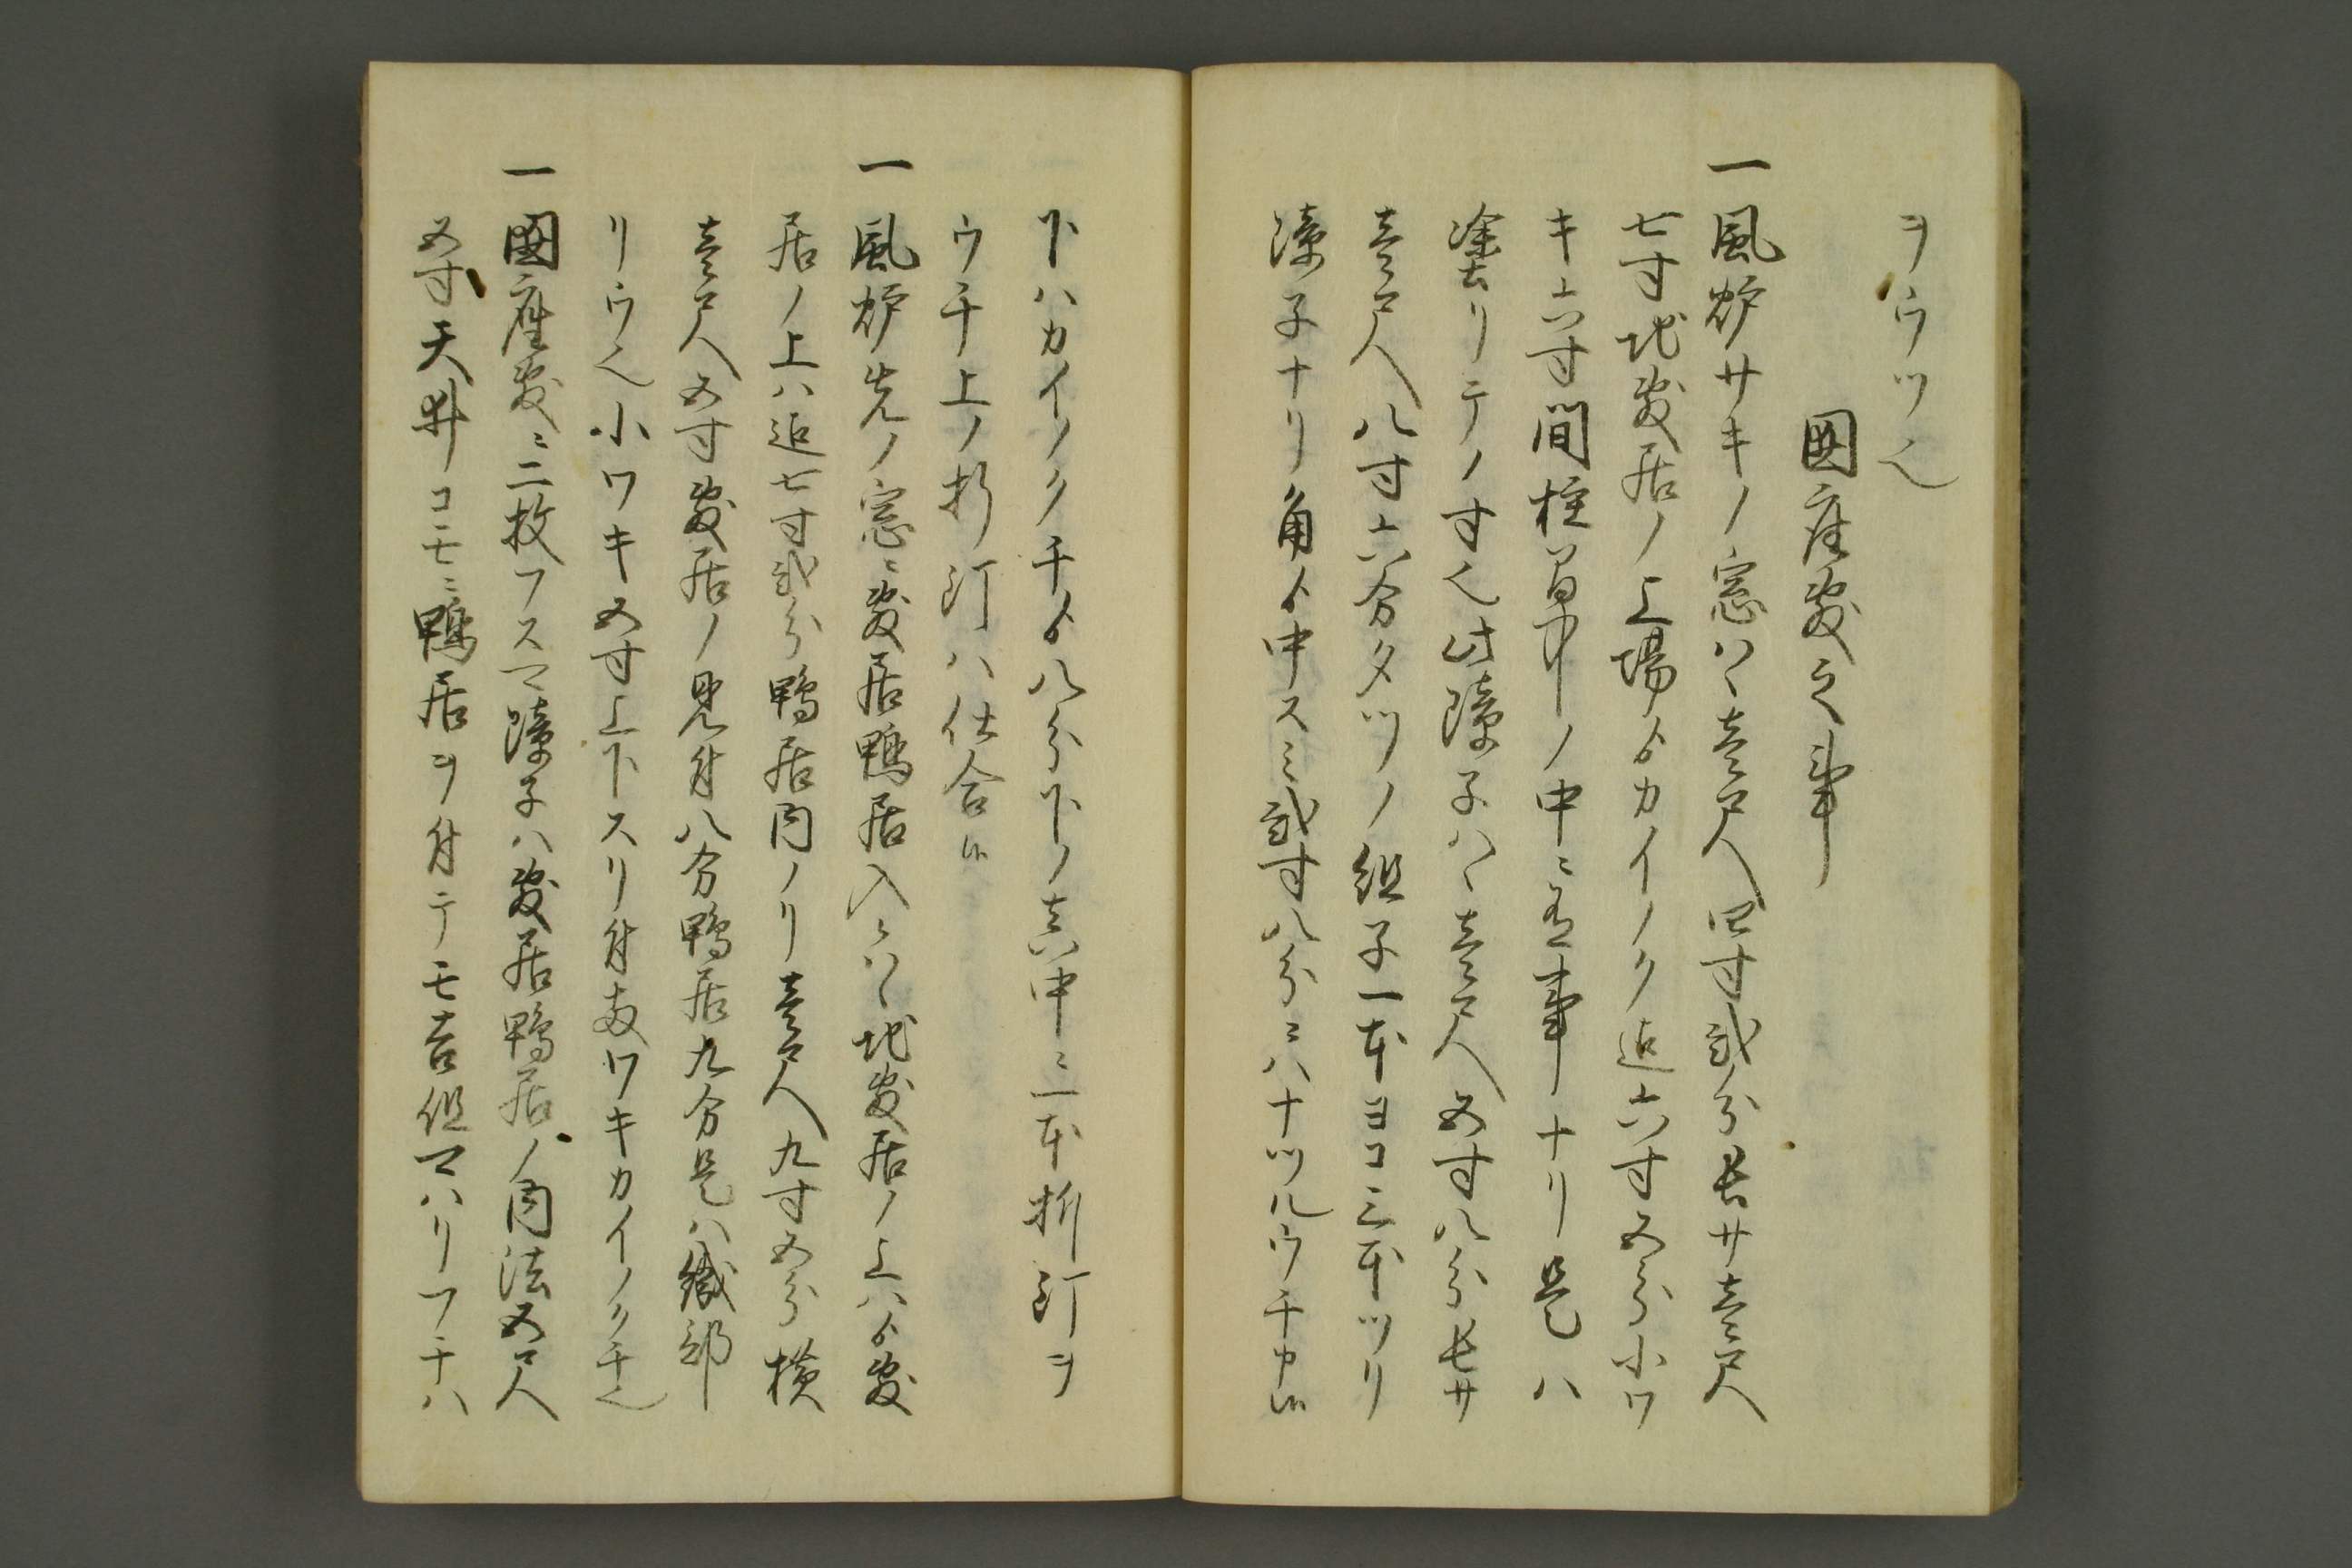 ヲウツ也
圍座敷之事
一風炉サキノ窓ハヽ壹尺四寸貳分長サ壹尺
七寸地敷居ノ上場ゟカイノク迠六寸五分小ワ
キ六寸間柱ノ中ニ有事ナリ是ハ
塗リテノ寸也此障子ハヽ壹尺五寸八分長サ
壹尺八寸六分タツノ組子一本ヨコ三本ツリ
障子ナリ角ゟ中スミ貳寸八分ニハナツルウチ申候
下ハカイノクチゟ八分下ノ真中ニ一本折釘ヲ
ウチ上ノ折釘ハ仕合候
一風炉先ノ窓ニ敷居鴨居入ハヽ地敷居ノ上ハゟ敷
居ノ上ハ迠七寸貳分鴨居内ノリ壹尺九寸五分横
壹尺五寸敷居ノ見付八分鴨居九分是ハ織部
リウ也小ワキ五寸上下スリ付両ワキカイノクチ也
一圍座敷ニ二枚フスマ障子ハ敷居鴨居ノ内法五尺
五寸天井コモニ鴨居ヲ付テモ吉組マハリフチハ